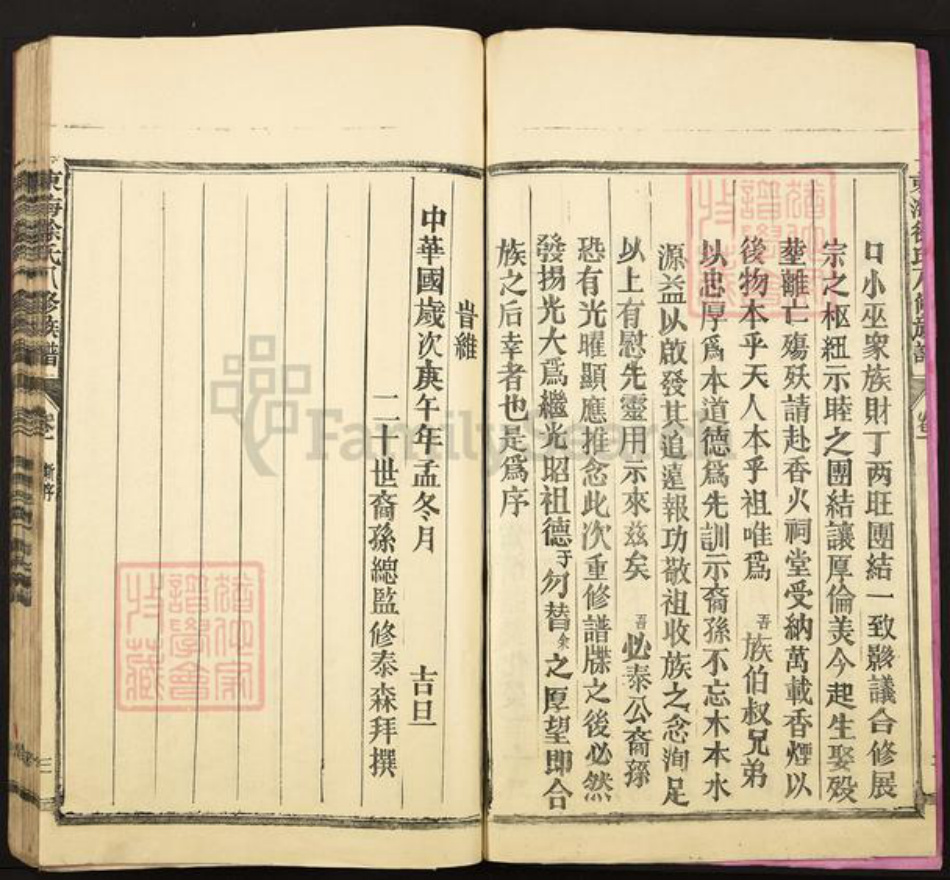 口小巫眾族財丁两旺團結一致夥議合修展
宗之枢紐示睦之團結讓厚倫美今起生娶殁
塟離亡殤殀請赴香火祠堂受納萬載香煙以
後物本乎天人本乎祖唯爲 吾族伯叔兄弟
以忠厚爲本道德爲先訓示裔孫不忘木本水
源益以啟發其追遠報功敬祖收族之念洵足
以上有慰先靈用示來茲矣 吾必泰公裔孫
恐有光曜顯應推念此次重修譜牒之後必然
發揚光大爲繼光昭祖德于勿替余之厚望即合
族之后幸者也是爲序
旹維
中華國歲次庚午年孟冬月 吉旦
二十世裔孫總監修泰森拜撰
東海徐氏八修族譜 卷一 新序
東海徐氏八修族譜 卷一
FamilySearch